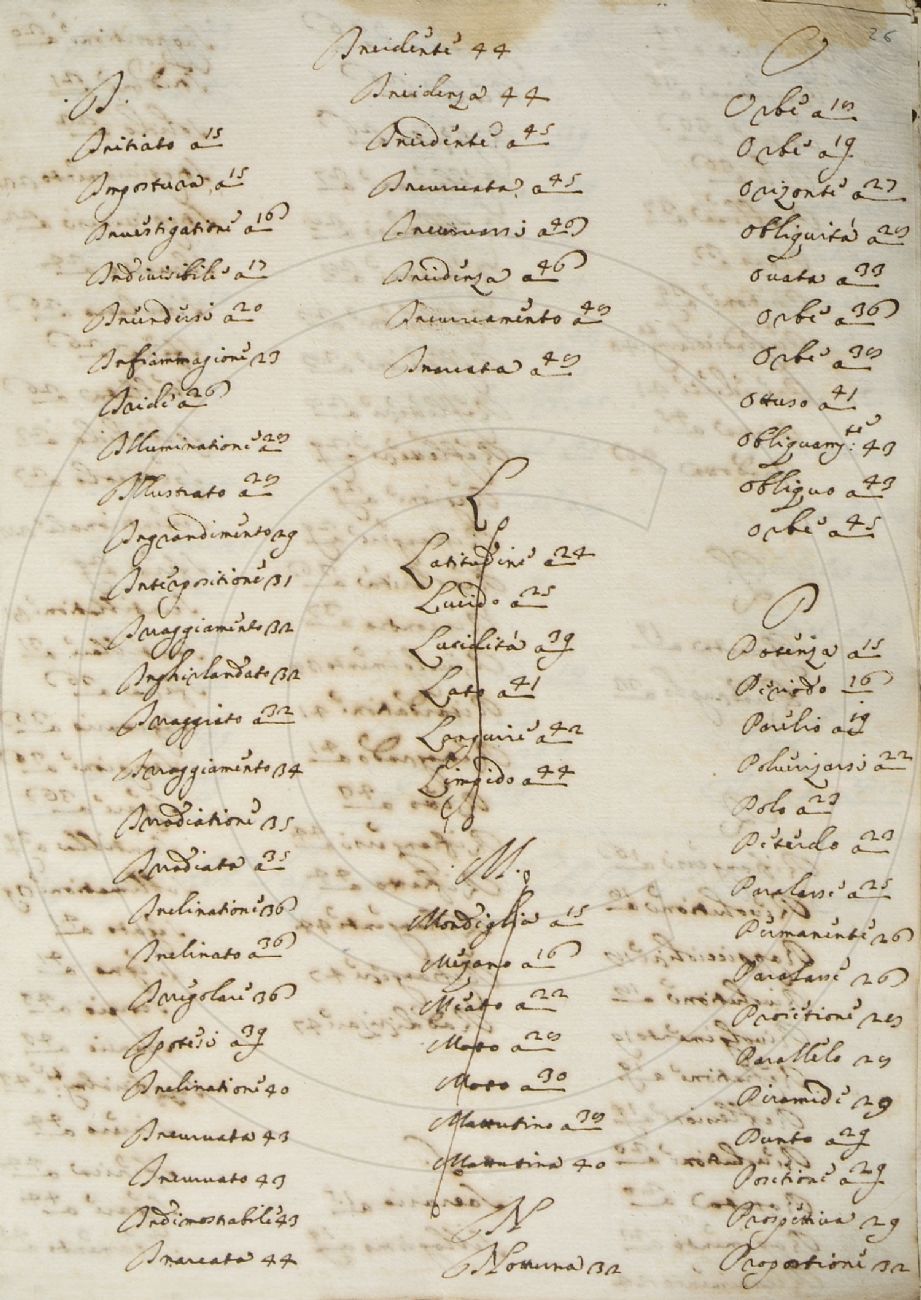 26
I.
Initiato a 15
Impostura a 15
Inuestigatione a 16
Indiuisibile a 17
Inundersi a 20
Infiammagione 23
Iride a 26
Illuminatione a 28
Illustrato a 28
Ingrandimento 29
Interpositione 31
Iraggiamento 32
Inghirlandato 32
Iraggiato a 32
Iraggiamento 34
Irradiatione 35
Irradiata a 35
Inclinatione 36
Inclinato a 36
Irregolare 36
Ipotesi a 39
Inclinatione 40
Incuruata 43
Incuruato 43
Indimostrabile 43
Inarcata 44
Incidente 44
Incidenza 44
Incidente a 45
Incuruata a 45
Incuruarsi a 46
Incidenza a 46
Incuruamento a 48
Inarcata a 48
L
Latitudine a 24
Lucido a 25
Lucidità a 39
Lato a 41
Languire a 42
Limpido a 44
M.
Mondiglia a 15
Mezano a 16
Meato a 22
Moto a 28
Moto a 30
Mattutino a 38
Mattutina 40
N
Notturna 32
O
Orbe a 18
Orbe a 19
Orizonte a 27
Obliquità a 28
Ouata a 33
Orbe a 36
Orbe a 38
Ottuso a 41
Obliquamte: 43
Obliquo a 43
Orbe a 45
P
Potenza a 15
Periodo 16
Parelio a 19
Poluerizarsi a 22
Polo a 23
Paralasse a 25
Permanente 26
Paralasse 26
Proietione 28
Parallelo 28
Piramide 29
Punto a 29
Positione a 29
Prospettiua 29
Proportione 32